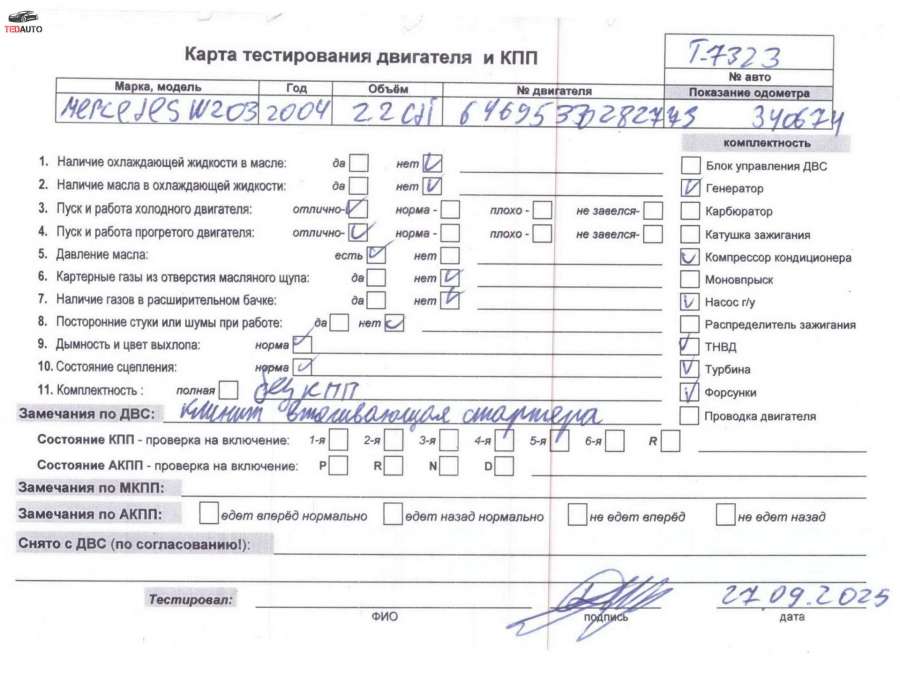 TEDAUTO
Карта тестирования двигателя и КПП
Т-7323
№ авто
Марка, модель Год Объём № двигателя Показание одометра
Mercedes W203 2004 2.2 CDI 64695330282773 340674
комплектность
1. Наличие охлаждающей жидкости в масле: да нет
Блок управления ДВС
2. Наличие масла в охлаждающей жидкости: да нет
Генератор
3. Пуск и работа холодного двигателя: отлично- норма - плохо - не завелся-
Карбюратор
4. Пуск и работа прогретого двигателя: отлично- норма - плохо - не завелся-
Катушка зажигания
5. Давление масла: есть нет
Компрессор кондиционера
6. Картерные газы из отверстия масляного щупа: да нет
Моновпрыск
7. Наличие газов в расширительном бачке: да нет
Насос г/у
8. Посторонние стуки или шумы при работе: да нет
Распределитель зажигания
9. Дымность и цвет выхлопа: норма
ТНВД
10. Состояние сцепления: норма
Турбина
11. Комплектность : полная без КПП
Форсунки
Замечания по ДВС: клинит втягивающая стартера
Проводка двигателя
Состояние КПП - проверка на включение: 1-я 2-я 3-я 4-я 5-я 6-я R
Состояние АКПП - проверка на включение: P R N D
Замечания по МКПП:
Замечания по АКПП: едет вперёд нормально едет назад нормально не едет вперёд не едет назад
Снято с ДВС (по согласованию!):
Тестировал: 27.09.2025
ФИО подпись дата